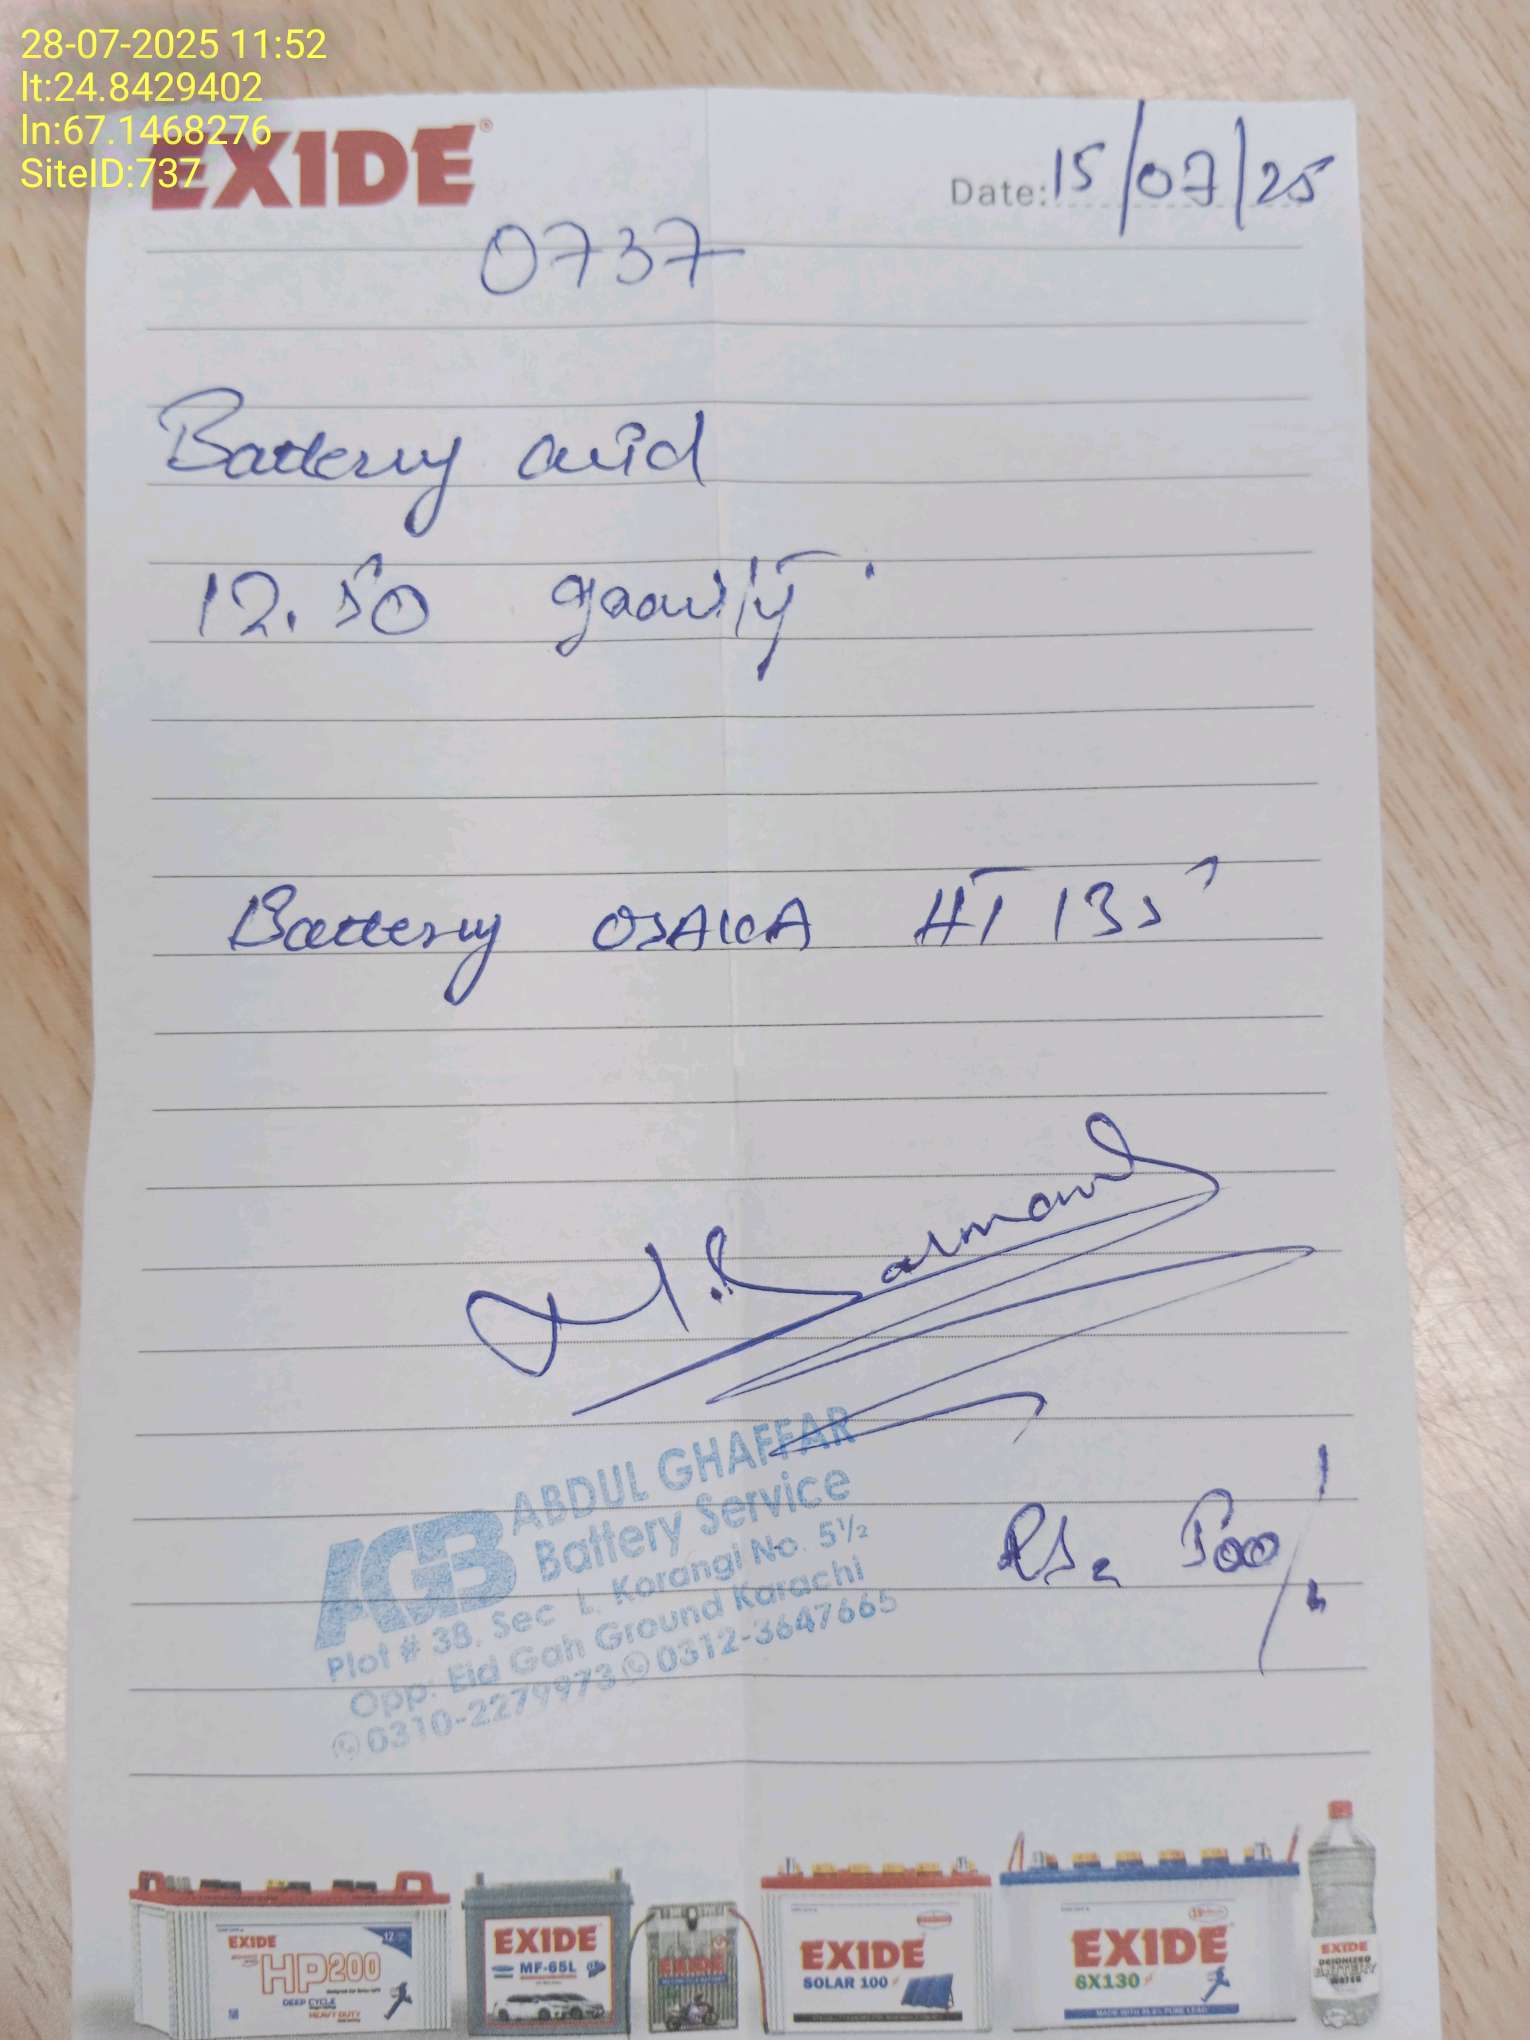 28-07-2025 11:52
lt:24.8429402
ln:67.1468276
SiteID:737
EXIDE®
Date: 15/07/25
0737
Battery acid
12.50 gravity
Battery OSAKA HT 135
M. Sarmand
AGB ABDUL GHAFFAR
Battery Service
Plot # 38, Sec L. Korangi No. 5½
Opp: Eid Gah Ground Karachi
0310-2279973 0312-3647665
Rs. 500/-
EXIDE
HP200
DEEP CYCLE
HEAVY DUTY
EXIDE
MF-65L
EXIDE
EXIDE
SOLAR 100
EXIDE
6X130
EXIDE
DEIONIZED
BATTERY
WATER